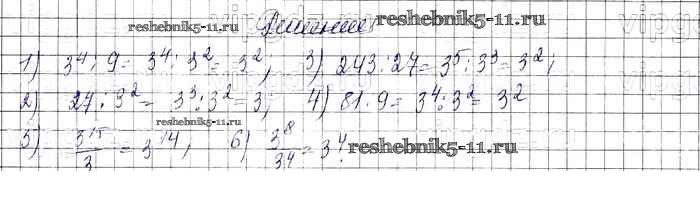 Решение reshebnik5-11.ru
reshebnik5-11.ru
1) 3⁴ : 9 = 3⁴ : 3² = 3²; 3) 243 : 27 = 3⁵ : 3³ = 3²;
2) 27 : 3² = 3³ : 3² = 3; 4) 81 : 9 = 3⁴ : 3² = 3²
reshebnik5-11.ru
5) 3¹⁵/3 = 3¹⁴; 6) 3⁸/3⁴ = 3⁴.
reshebnik5-11.ru